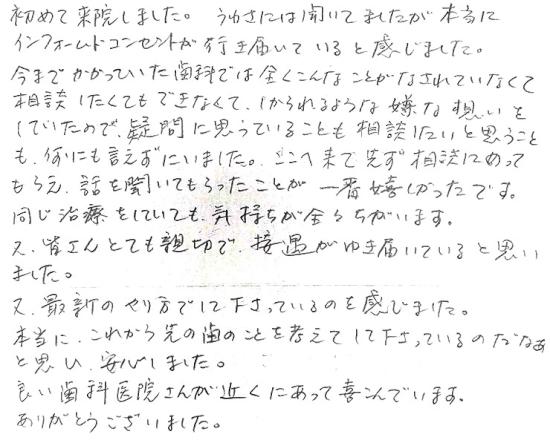 初めて来院しました。 うわさには聞いてましたが本当に
インフォームドコンセントが行き届いていると感じました。
今までかかっていた歯科では全くこんなことがなされていなくて
相談したくてもできなくて、しかられるような嫌な想いを
していたので、疑問に思っていることも相談したいと思うこと
も、何にも言えずにいました。ここへ来て先ず相談にのって
もらえ、話を聞いてもらったことが 一番嬉しかったです。
同じ治療をしていても、気持ちが全々ちがいます。
又、皆さんとても親切で、接遇がゆき届いていると思い
ました。
又、最新のやり方でして下さっているのを感じました。
本当に、これから先の歯のことを考えてして下さっているのだなあ
と思い、安心しました。
良い歯科医院さんが近くにあって喜こんでいます。
ありがとうございました。